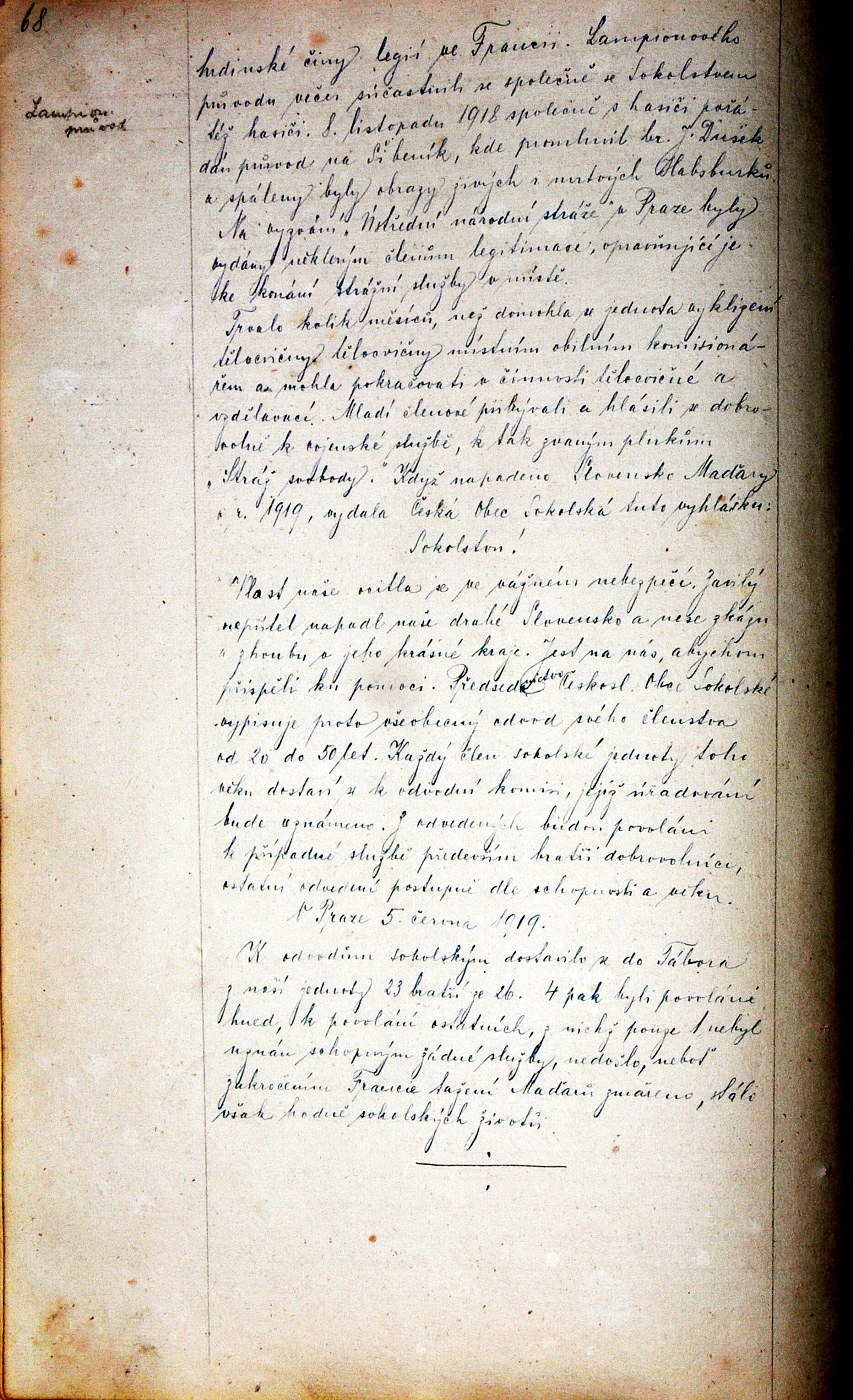 68
Lampion.
průvod
hrdinské činy legií ve Francii. Lampionového
průvodu večer súčastnili se společně se Sokolstvem
též hasiči. 8. listopadu 1918 společně s hasiči pořá-
dán průvod na Šibeník, kde promluvil br. J. Dušek
a spáleny byly obrazy živých i mrtvých Habsburků.
Na vyzvání „Ústřední národní stráže" v Praze byly
vydány některým členům legitimace, opravňující je
ke konání strážní služby v místě.
Trvalo kolik měsíců, než domohla se jednota vyklizení
tělocvičny tělocvičny místním obilním komisioná-
řem a mohla pokračovati v činnosti tělocvičné a
vzdělavací. Mladí členové přibývali a hlásili se dobro-
volně k vojenské službě, k tak zvaným plukům
„Stráž svobody." Když napadeno Slovensko Maďary
v r. 1919, vydala Česká Obec Sokolská tuto vyhlášku:
Sokolstvu!
Vlast naše ocitla se ve vážném nebezpečí. Zavilý
nepřítel napadl naše drahé Slovensko a nese zkázu
a zhoubu v jeho krásné kraje. Jest na nás, abychom
přispěli ku pomoci. Předsednictvo Českosl. Obce Sokolské
vypisuje proto všeobecný odvod svého členstva
od 20 do 50 let. Každý člen sokolské jednoty toho
věku dostaví se k odvodní komisi, jejíž úřadování
bude oznámeno. Z odvedených budou povoláni
k případné službě především bratři dobrovolníci,
ostatní odvedení postupně dle schopnosti a věku.
V Praze 5. června 1919.
K odvodům sokolským dostavilo se do Tábora
z naší jednoty 23 bratří ze 26. 4 pak byli povoláni
hned, k povolání ostatních, z nichž pouze 1 nebyl
uznán schopným žádné služby, nedošlo, neboť
zakročením Francie tažení Maďarů zmařeno, stálo
však hodně sokolských životů.